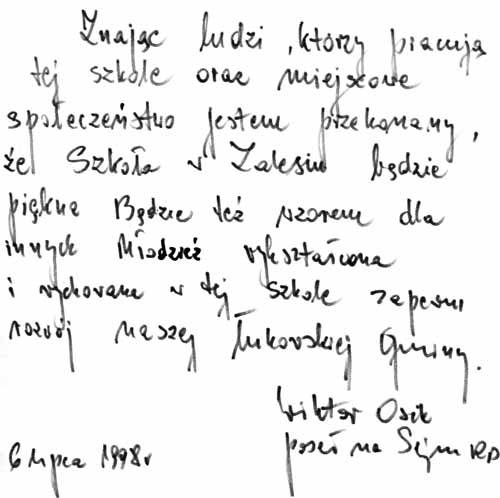 Znając ludzi, którzy pracują
tej szkole oraz miejscowe
społeczeństwo jestem przekonany,
że Szkoła w Zalesiu będzie
piękna Będzie też wzorem dla
innych Młodzież wykształcona
i wychowana w tej szkole zapewni
rozwój naszej Łukowskiej Gminy.
Wiktor Osik
poseł na Sejm RP
6 lipca 1998 r